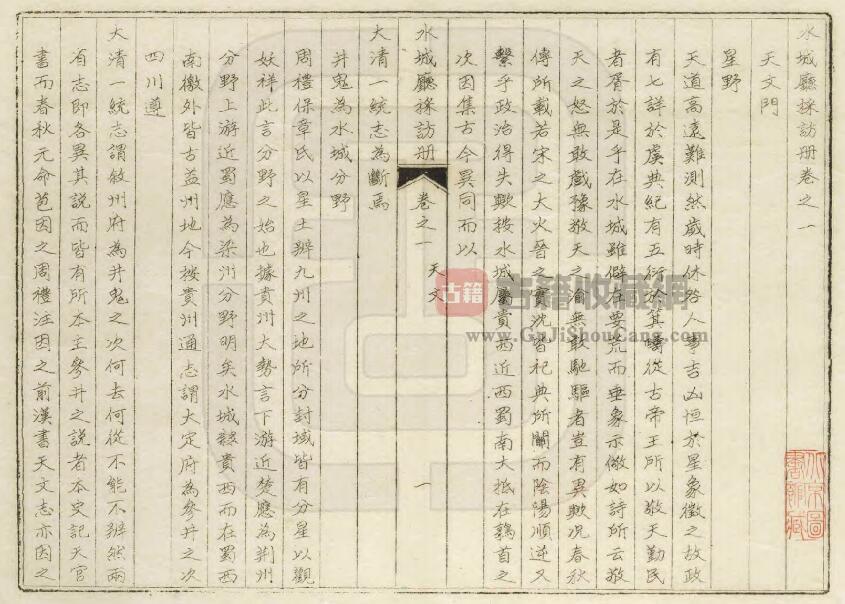 水城廳採訪册卷之一
天文門
星野
天道高遠難測然歲時休咎人事吉凶恒於星象徵之故政
有七詳於虞典紀有五衍於箕疇從古帝王所以敬天勤民
者胥於是乎在水城雖僻在要荒而垂象示儆如詩所云敬
天之怒無敢戲豫敬天之渝無敢馳驅者豈有異歟况春秋
傳所載若宋之大火晉之實沈皆祀典所關而陰陽順逆又
繫乎政治得失歟按水城屬貴西近西蜀南大抵在鶉首之
次因集古今異同而以
水城廳採訪册
卷之一
天文
一
大清一統志為斷焉
井鬼為水城分野
周禮保章氏以星土辨九州之地所分封域皆有分星以觀
妖祥此言分野之始也據貴州大勢言下游近楚應為荆州
分野上游近蜀應為梁州分野明矣水城隸貴西而在蜀西
南徼外皆古益州地今按貴州通志謂大定府為參井之次
四川遵
大清一統志謂敘州府為井鬼之次何去何從不能不辨然兩
省志即各異其説而皆有所本主參井之説者本史記天官
書而春秋元命苞因之周禮注因之前漢書天文志亦因之
古籍
古籍收藏網
www.GuJiShouCang.com